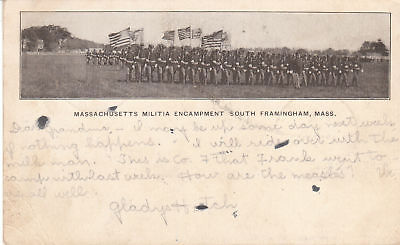 MASSACHUSETTS MILITIA ENCAMPMENT SOUTH FRAMINGHAM, MASS.
Dear Grandma – I may be up some day next week
if nothing happens. I will ride over with the
milk man. This is Co. F that Frank went to
camp with last week. How are the measles? We
all well.
Gladys H